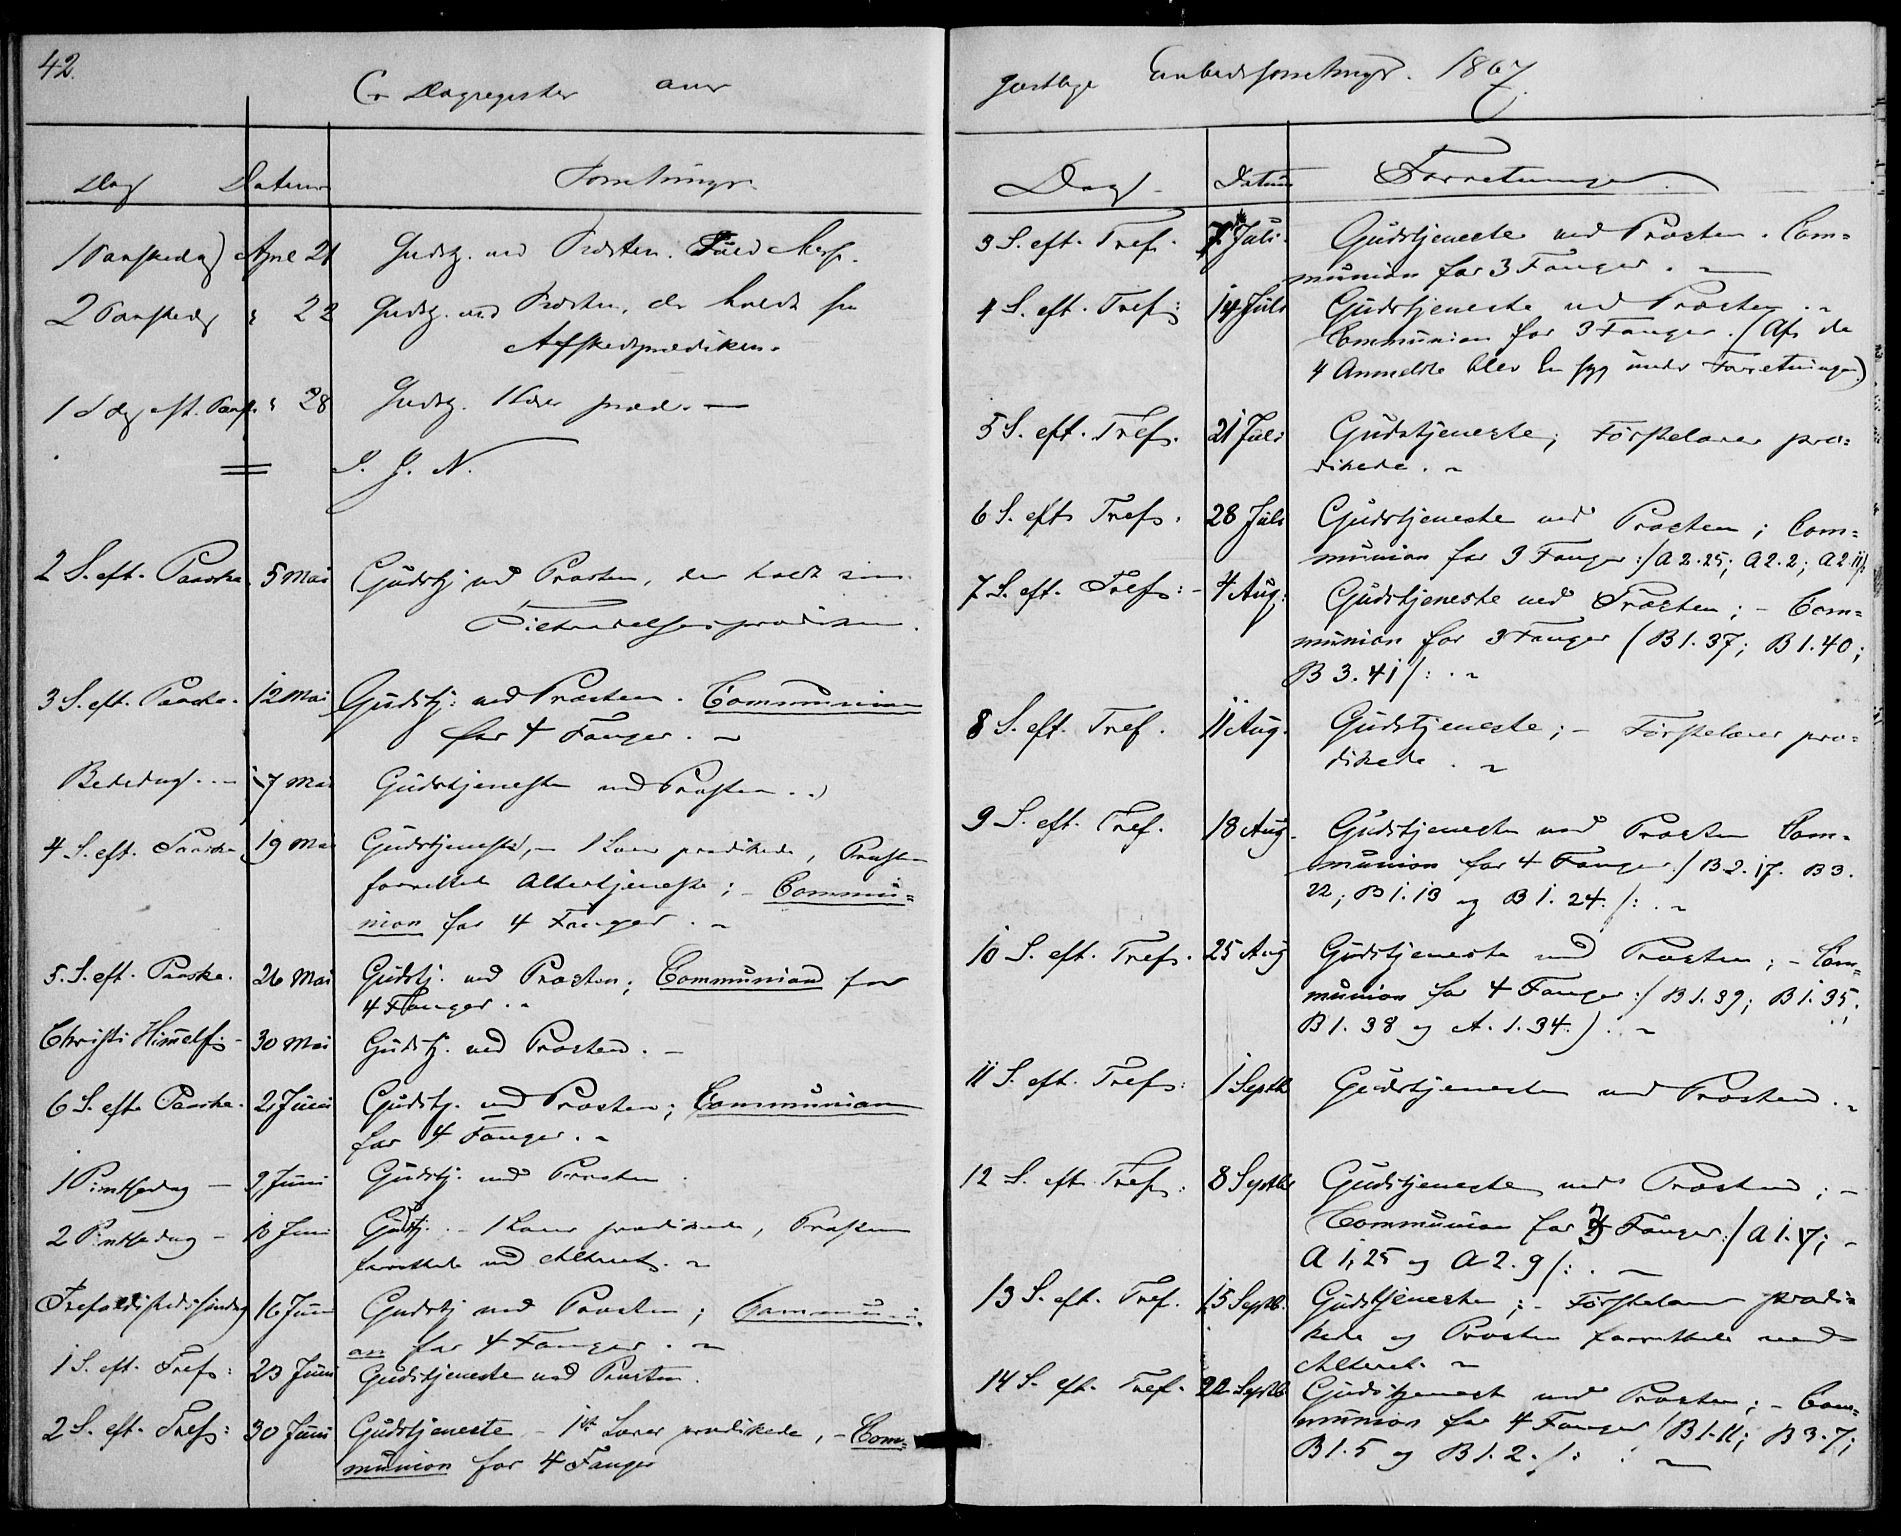 42.
C. Dagregister over
Dag Datum Forretninger.
1 Paaskedag April 21 Gudstj. ved Præsten. Fuld Messe.
2 Paaskedag " 22 Gudstj. ved Præsten, der holdt sin
Afskedsprædiken.
1 S dag eft. Paaske " 28 Gudstj. 1 Lærer præd. —
I. J. N.
2 S. eft. Paaske. 5 Mai Gudstj ved Præsten, der holdt sin
Tiltrædelsesprædiken.
3 S. eft. Paaske. 12 Mai Gudstj: ved Præsten. Communion
for 4 Fanger. ~
Bededag. — 17 Mai Gudstjeneste ved Præsten.
4 S. eft. Paaske 19 Mai Gudstjeneste, – 1 Lærer prædikede, Præsten
forrettede Altertjeneste; – Commu=
nion for 4 Fanger. ~
5. S. eft. Paaske. 26 Mai Gudstj. ved Præsten; Communion for
4 Fanger. ~
Christi Himmelf: – 30 Mai Gudstj. ved Præsten. –
6 S. eft. Paaske. 2 Juni Gudstj. ved Præsten; Communion
for 4 Fanger. ~
1 Pintsedag — 9 Juni Gudstj. ved Præsten
2 Pintsedag – 10 Juni Gudstj. – 1 Lærer prædikede, Præsten
forrettede ved Alteret. ~
Trefoldighedssøndag 16 Juni Gudstj ved Præsten; Communi=
on for 4 Fanger. ~
1 S. eft. Tref: 23 Juni Gudstjeneste ved Præsten.
2 S. eft. Tref: 30 Juni Gudstjeneste – 1ste Lærer prædikede, – Com=
munion for 4 Fanger
gestlige Embedsforretninger. 1867.
Dag. Datum Forretninger.
3 S. eft. Tref. 7 Juli. Gudstjeneste ved Præsten. Com=
munion for 3 Fanger. ~
4 S. eft. Tref: 14 Juli Gudstjeneste ved Præsten. ~
Communion for 3 Fanger. (Af de
4 Anmeldte blev En syg under Forretningen)
5 S. eft. Tref. 21 Juli Gudstjeneste; Førstelærer præ=
dikede. ~
6 S. eft. Tref. 28 Juli Gudstjeneste ved Præsten; Com=
munion for 3 Fanger :/ A 2.25; A 2.2; A 2.11 /:
7 S. eft. Tref: – 4 Aug: Gudstjeneste ved Præsten; – Com=
munion for 3 Fanger ( B 1.37; B 1.40;
B 3.41 /: . ~
8 S. eft. Tref. 11 Aug. Gudstjeneste; – Førstelærer præ=
dikede. ~
9 S. eft. Tref. 18 Aug. Gudstjeneste ved Præsten Com=
munion for 4 Fanger :/ B 2.17. B 3.
22; B 1.13 og B 1.24. /: . ~
10 S. eft. Tref. 25 Aug Gudstjeneste ved Præsten; – Com=
munion for 4 Fanger :/ B 1.39; B 1.35;
B 1.38 og A. 1.34.) . ~
11 S. eft. Tref: 1 Septb Gudstjeneste ved Præsten. ~
12 S. eft. Tref: 8 Septbr Gudstjeneste ved Præsten; –
Communion for 3 Fanger :/ A 1.17; –
A 1,25 og A 2.9 /: . ~
13 S. eft. Tref. 15 Septb. Gudstjeneste; – Førstelærer prædi=
kede og Præsten forrettede ved
Alteret. ~
14 S. eft. Tref. 22 Septb Gudstjeneste ved Præsten; – Com=
munion for 4 Fanger (B 1.11; B 3.7;
B 1.5 og B 1.2. /: . ~